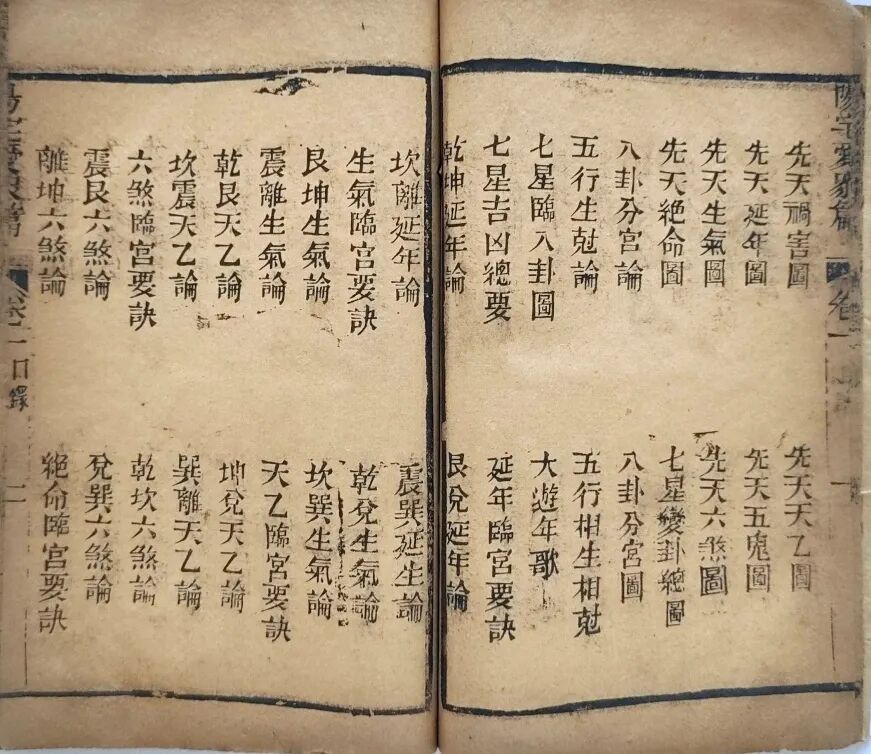 卷一
先天禍害圖
先天天乙圖
先天延年圖
先天五鬼圖
先天生氣圖
先天六煞圖
先天絕命圖
七星變卦總圖
八卦分宮論
八卦分宮圖
五行生尅論
五行相生相尅
七星臨八卦圖
大遊年歌
七星吉凶總要
延年臨宮要訣
乾坤延年論
艮兌延年論
坎離延年論
震巽延生論
生氣臨宮要訣
乾兌生氣論
艮坤生氣論
坎巽生氣論
震離生氣論
天乙臨宮要訣
乾艮天乙論
坤兌天乙論
坎震天乙論
巽離天乙論
六煞臨宮要訣
乾坎六煞論
震艮六煞論
兌巽六煞論
離坤六煞論
絕命臨宮要訣
目錄
二